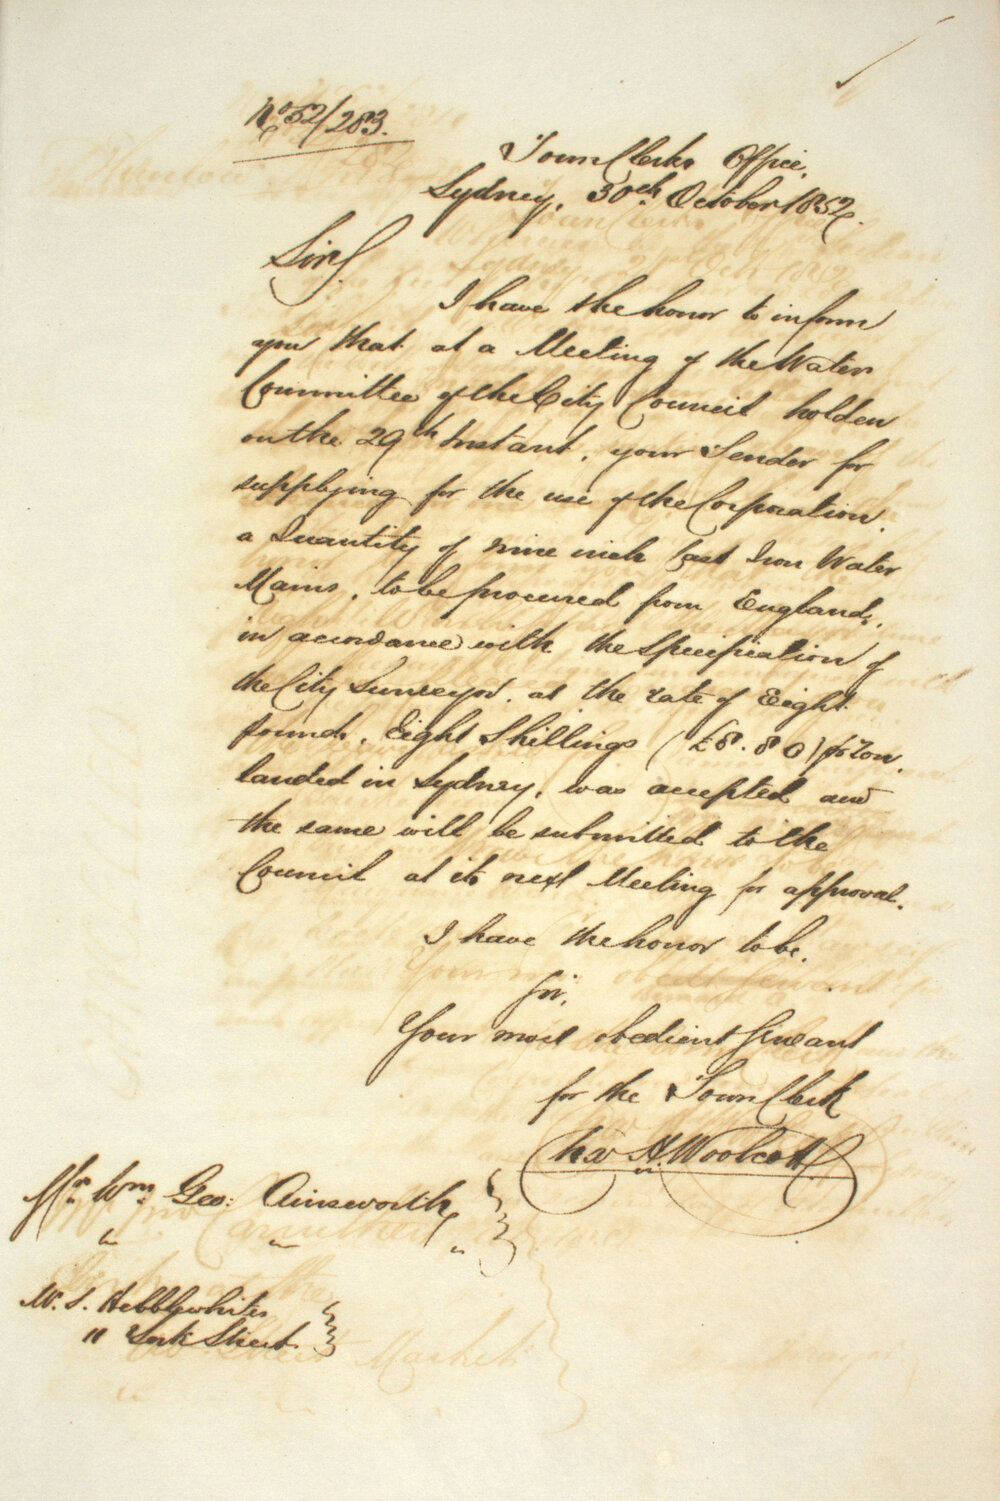 No 52/283.
Town Clerks Office,
Sydney, 30th October 1852.
Sir,
I have the honor to inform
you that at a Meeting of the Water
Committee of the City Council holden
on the 29th Instant, your Tender for
supplying for the use of the Corporation,
a Quantity of nine inch Cast Iron Water
Mains, to be procured from England,
in accordance with the Specification of
the City Surveyor, at the rate of Eight
pounds, Eight Shillings (£8.8.0) pr Ton,
landed in Sydney, was accepted and
the same will be submitted to the
Council at its next Meeting for approval.
I have the honor to be,
Sir,
Your most obedient Servant
for the Town Clerk
Chas H. Woolcott
Mr Wm Geo: Ainsworth
" " "
W. S. Hebblewhites
11 York Street